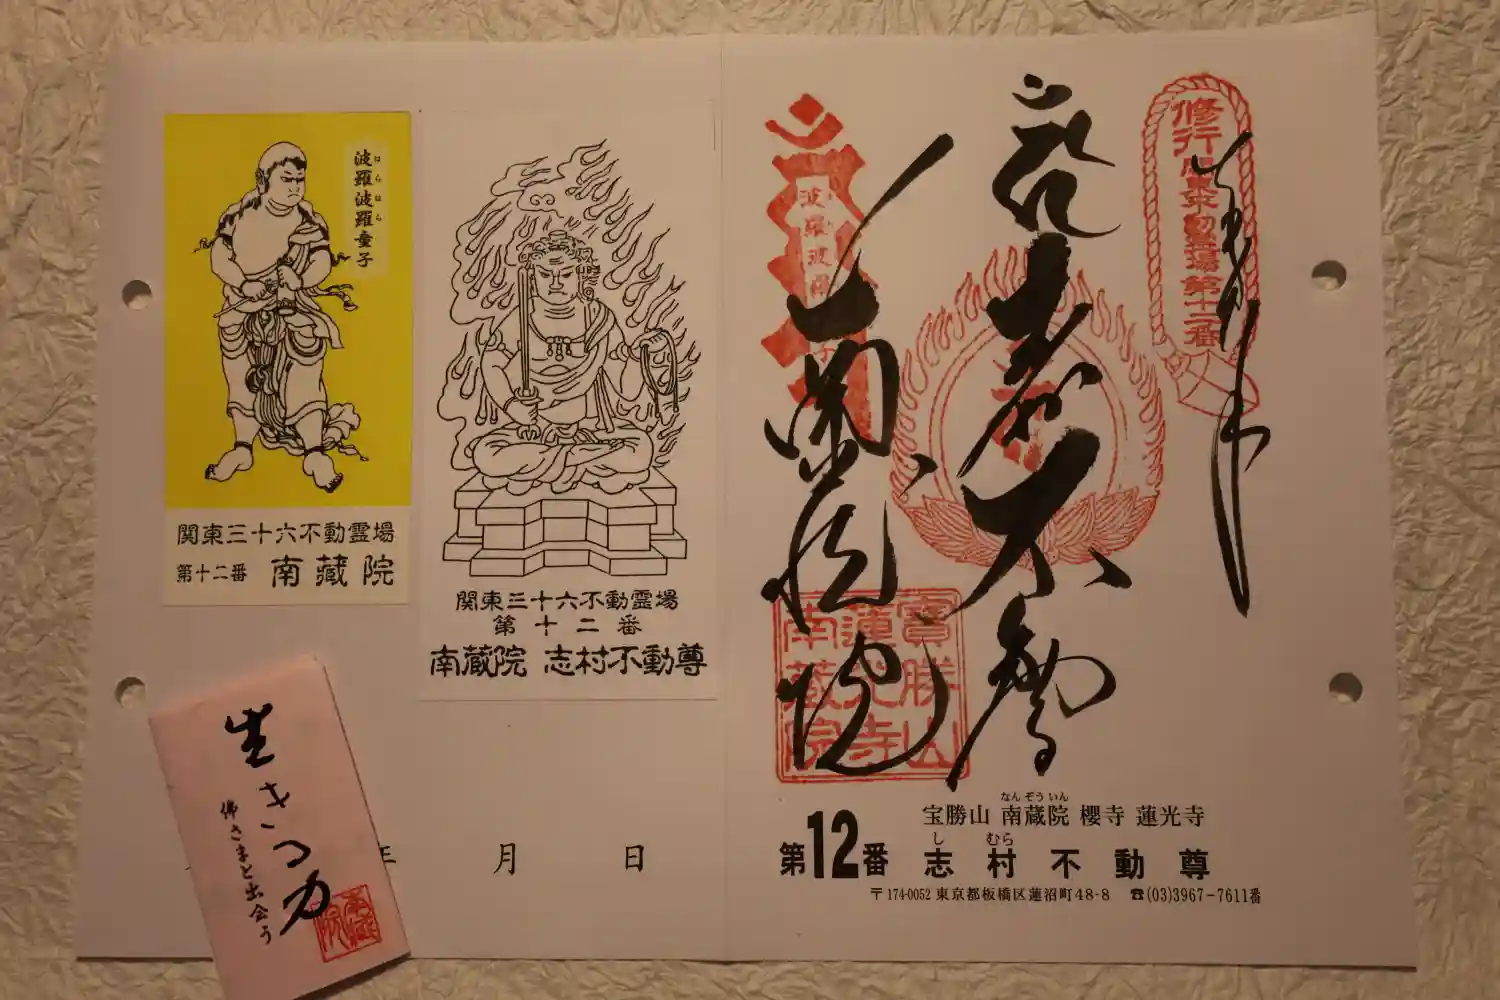 波羅波羅童子
はらはら
関東三十六不動霊場
第十二番 南蔵院
関東三十六不動霊場
第十二番
南蔵院 志村不動尊
生きる力
佛さまと出会う
南蔵院
年 月 日
修行 関東不動霊場第十二番
奉拝
志村不動尊
南蔵院
波羅波羅
寶勝山
蓮光寺
南蔵院
なんぞういん
宝勝山 南蔵院 櫻寺 蓮光寺
し むら
第12番 志村不動尊
〒174-0052 東京都板橋区蓮沼町48-8 ☎(03)3967-7611番